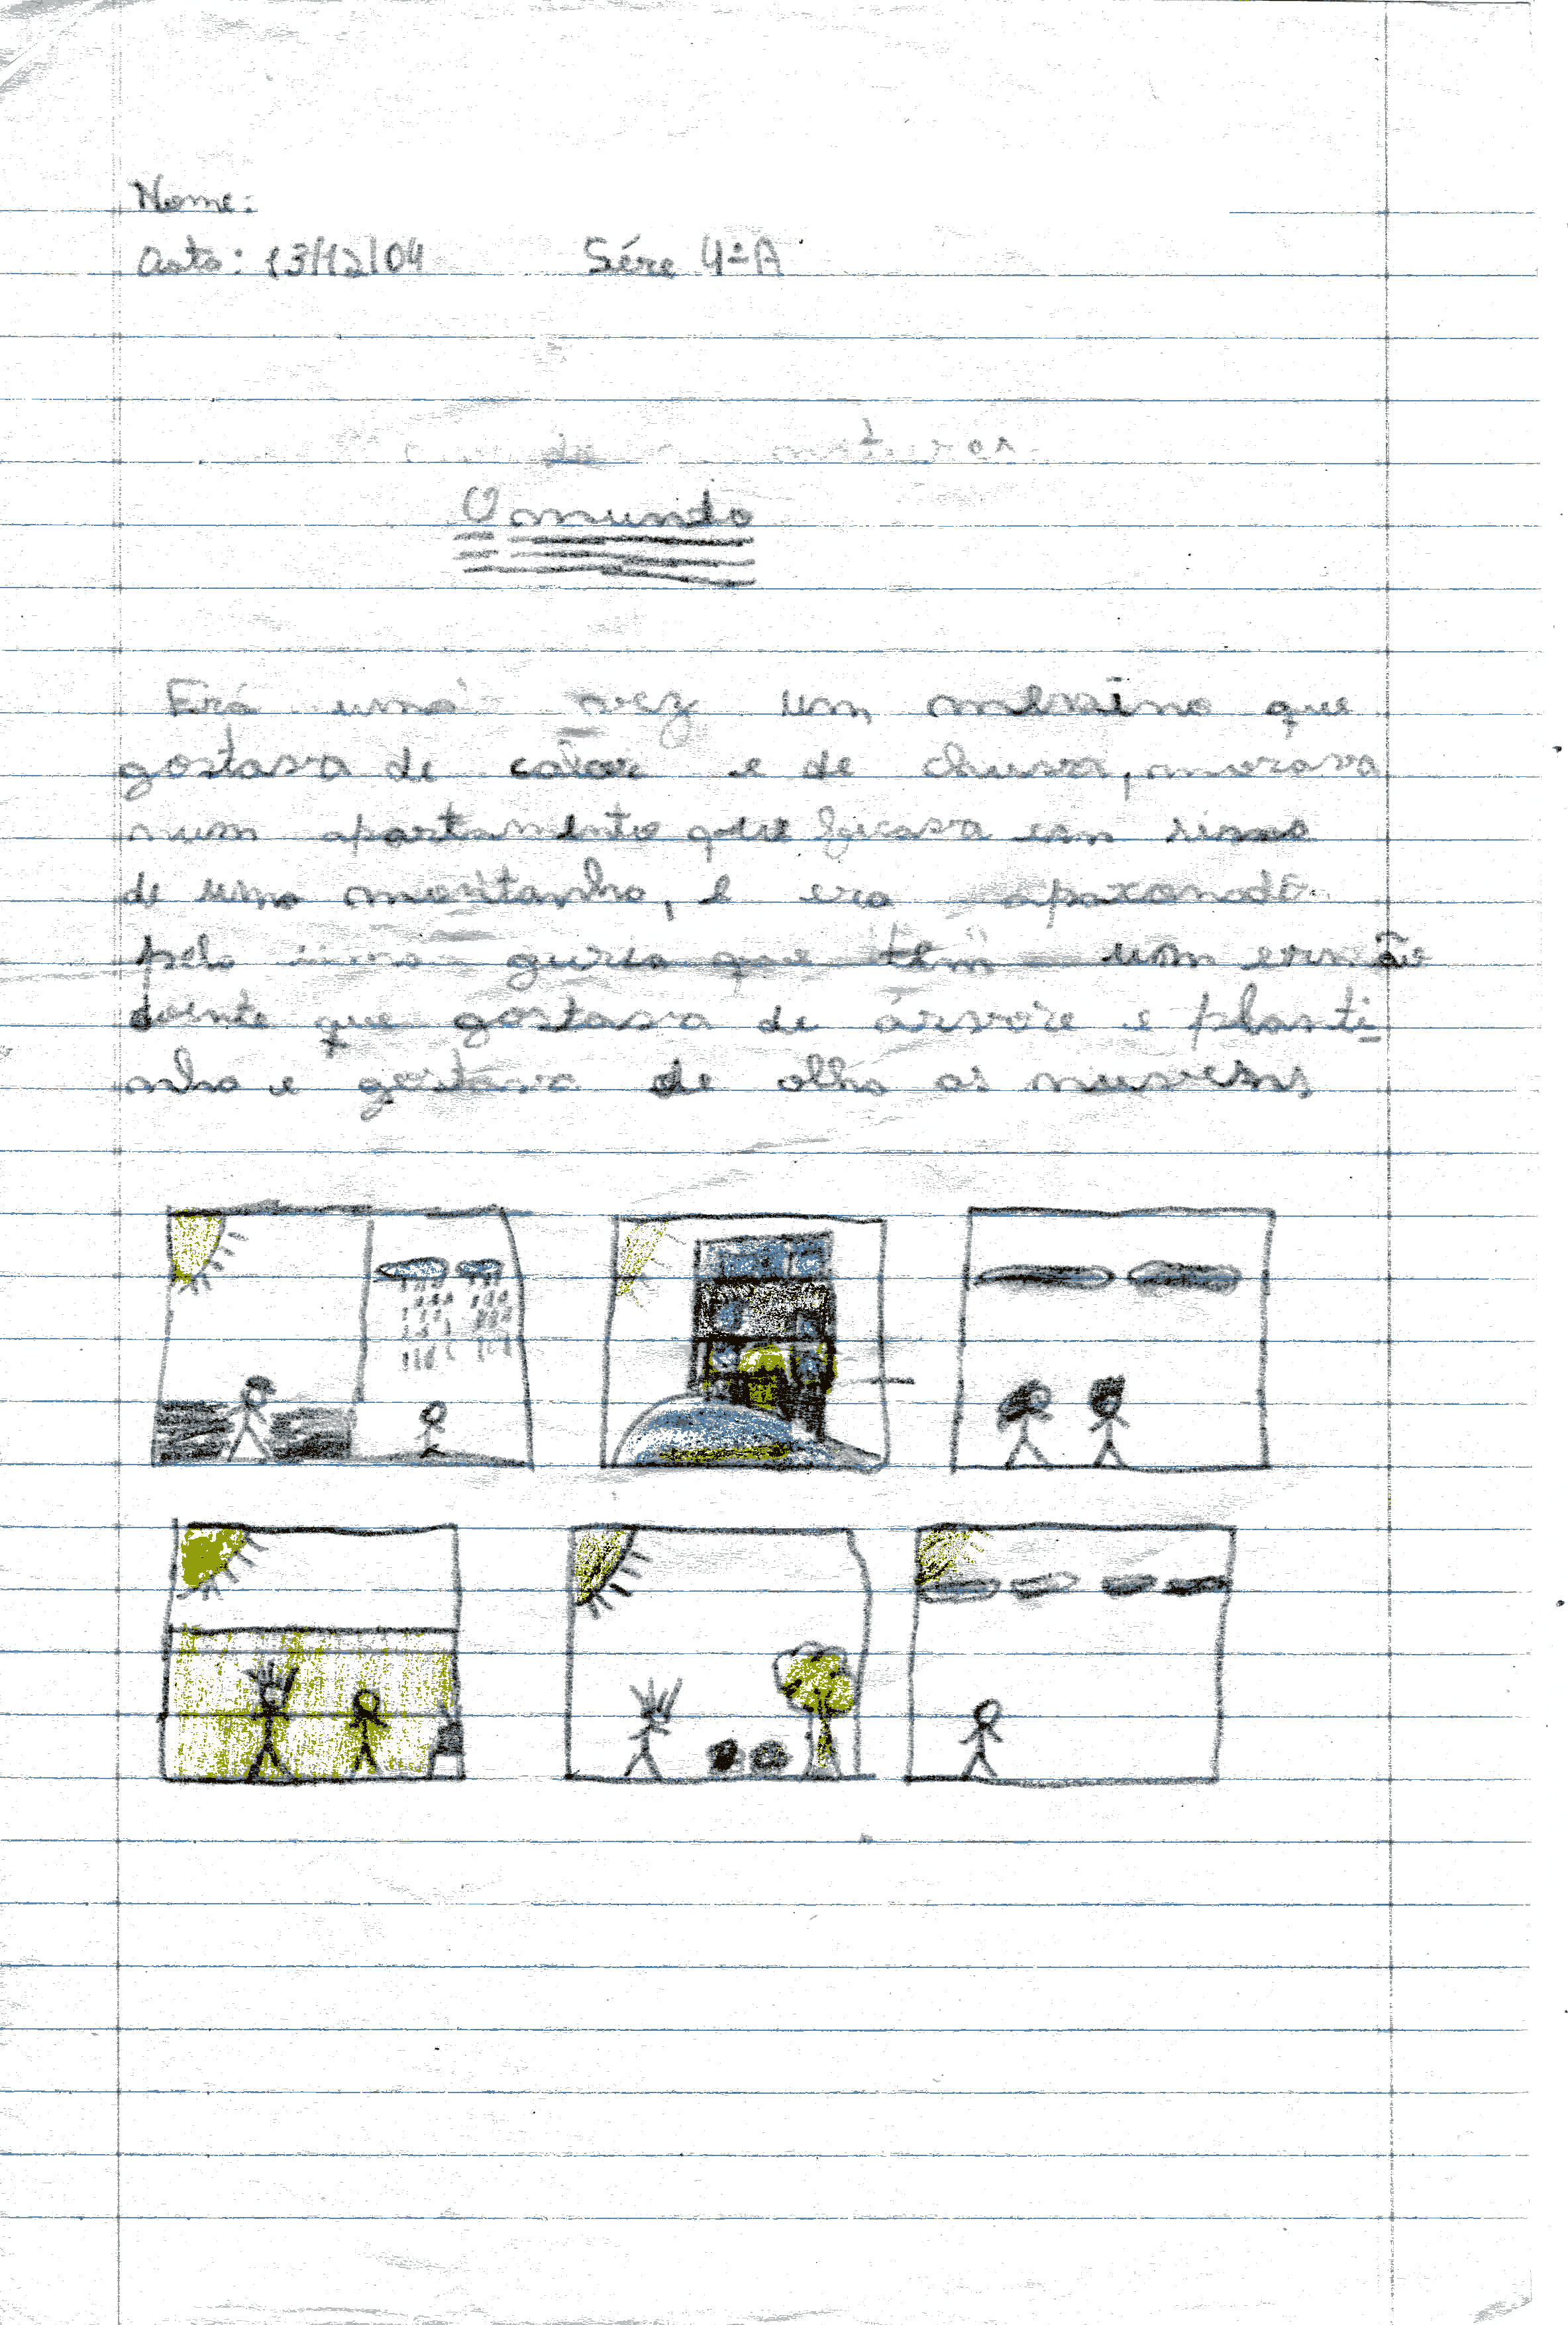 Nome:
Data: 13/12/04 Sére 4ªA
O mundo
Erá uma vez um menino que
gostava de calor e de chuva, morava
num apartamento que ficava em sima
de uma montanha, e era apaxonado
pela guria que tem um ermão
doente que gostava de árvore e planti
nha e gostava de olha as nuvens